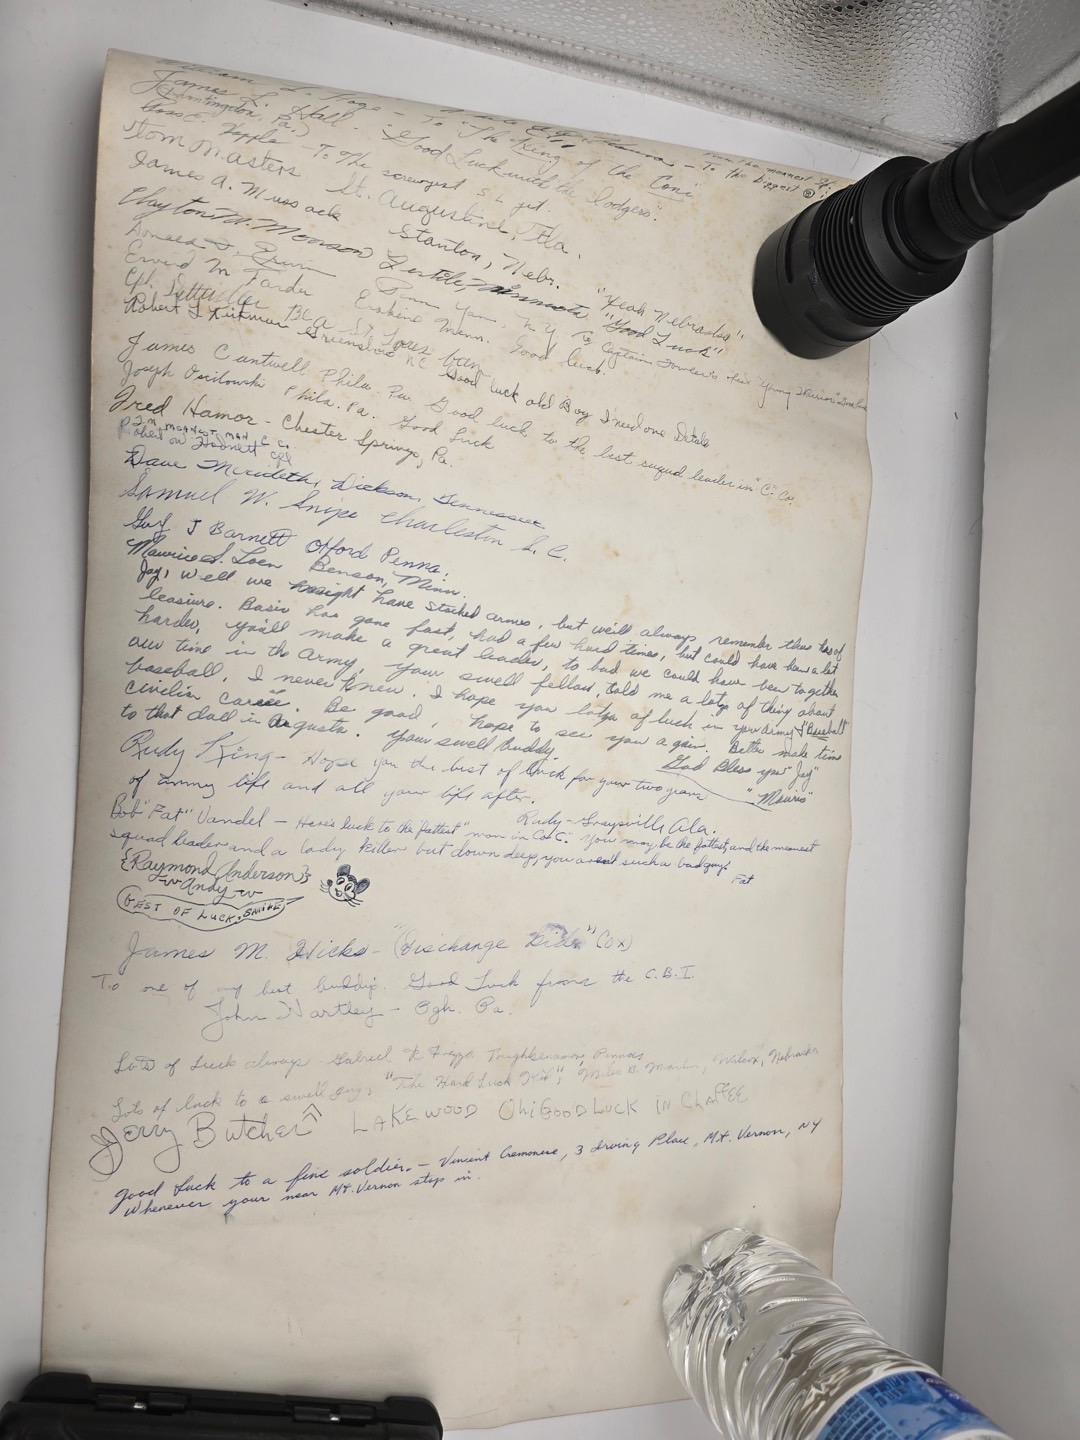 James L. Hall - "Good Luck with the Dodgers".
(Huntingdon, Pa.)
To The screwyest S L yet.
Tom Masters St. Augustine, Fla.
James A. Musack Stanton, Nebr. "Yeah Nebraska"
Clayton M. Monson Fertile, Minnesota "Good Luck"
Donald J. Penn Yan, N.Y. To Captain
M Farder Erskine Minn. Good luck.
Cpl. St. Louis
Robert L Kirkman Greensboro NC Good luck old Boy I need one Detale
James Cantwell Phila. Pa. Good luck to the best squad leader in "C." Co.
Joseph Phila. Pa. Good Luck
Fred Hamor - Chester Springs, Pa.
MAN C Co.
Robert W. Hodnett Cpl
Dave Merideth, Dickson, Tennessee
Samuel W. Snipe Charleston S. C.
Guy J Barnett Offord Penna.
Maurice S. Loen Benson, Minn.
Jay, well we might have stacked arms, but we'll always remember thus of
leasiure. Basic has gone fast, had a few hard times, but could have been a lot
harder, you'll make a great leader, to bad we could have been together
our time in the army, your swell fellow, told me a lotga of thing about
baseball, I never knew. I hope you lotga of luck in your Army & "Baseball"
civilin career. Be good, hope to see you again. Better make time
to that doll in Augusta. Your swell buddy.
God Bless you "Jay"
"Mauris"
Rudy King - Hope you the best of luck for your two years
of army life and all your life after.
Rudy - Graysville, Ala.
Bob "Fat" Vandel - Here's luck to the "fattest" man in Co "C". You may be the fattest, and the meanest
squad leader and a lady killer but down deep, you arent such a bad guy.
Fat
{Raymond Anderson}
Andy
BEST OF LUCK
James M. Hicks - "(Discharge" Cox)
To one of my best buddys. Good Luck from the C.B.I.
John Hartley - Pgh. Pa.
Lots of Luck always - Gabriel Pennas
Lots of luck to a swell guy, "The Hard Luck Kid", Miles B. Martin, Wilcox, Nebraska
Jerry Butcher LAKEWOOD Ohi GOOD LUCK IN CHAFFEE
Good Luck to a fine soldier. - Vincent Cremonese, 3 Irving Place, Mt. Vernon, NY
Whenever your near Mt. Vernon stop in.